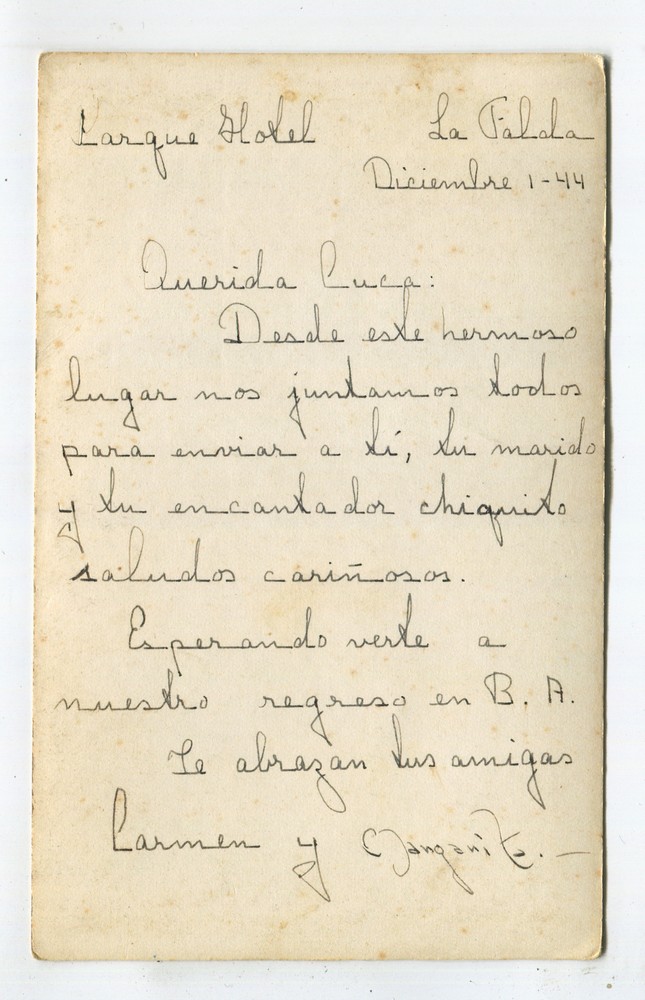 Parque Hotel La Falda
Diciembre 1-44
Querida Cuca:
Desde este hermoso
lugar nos juntamos todos
para enviar a tí, tu marido
y tu encantador chiquito
saludos cariñosos.
Esperando verte a
nuestro regreso en B. A.
Te abrazan tus amigas
Carmen y